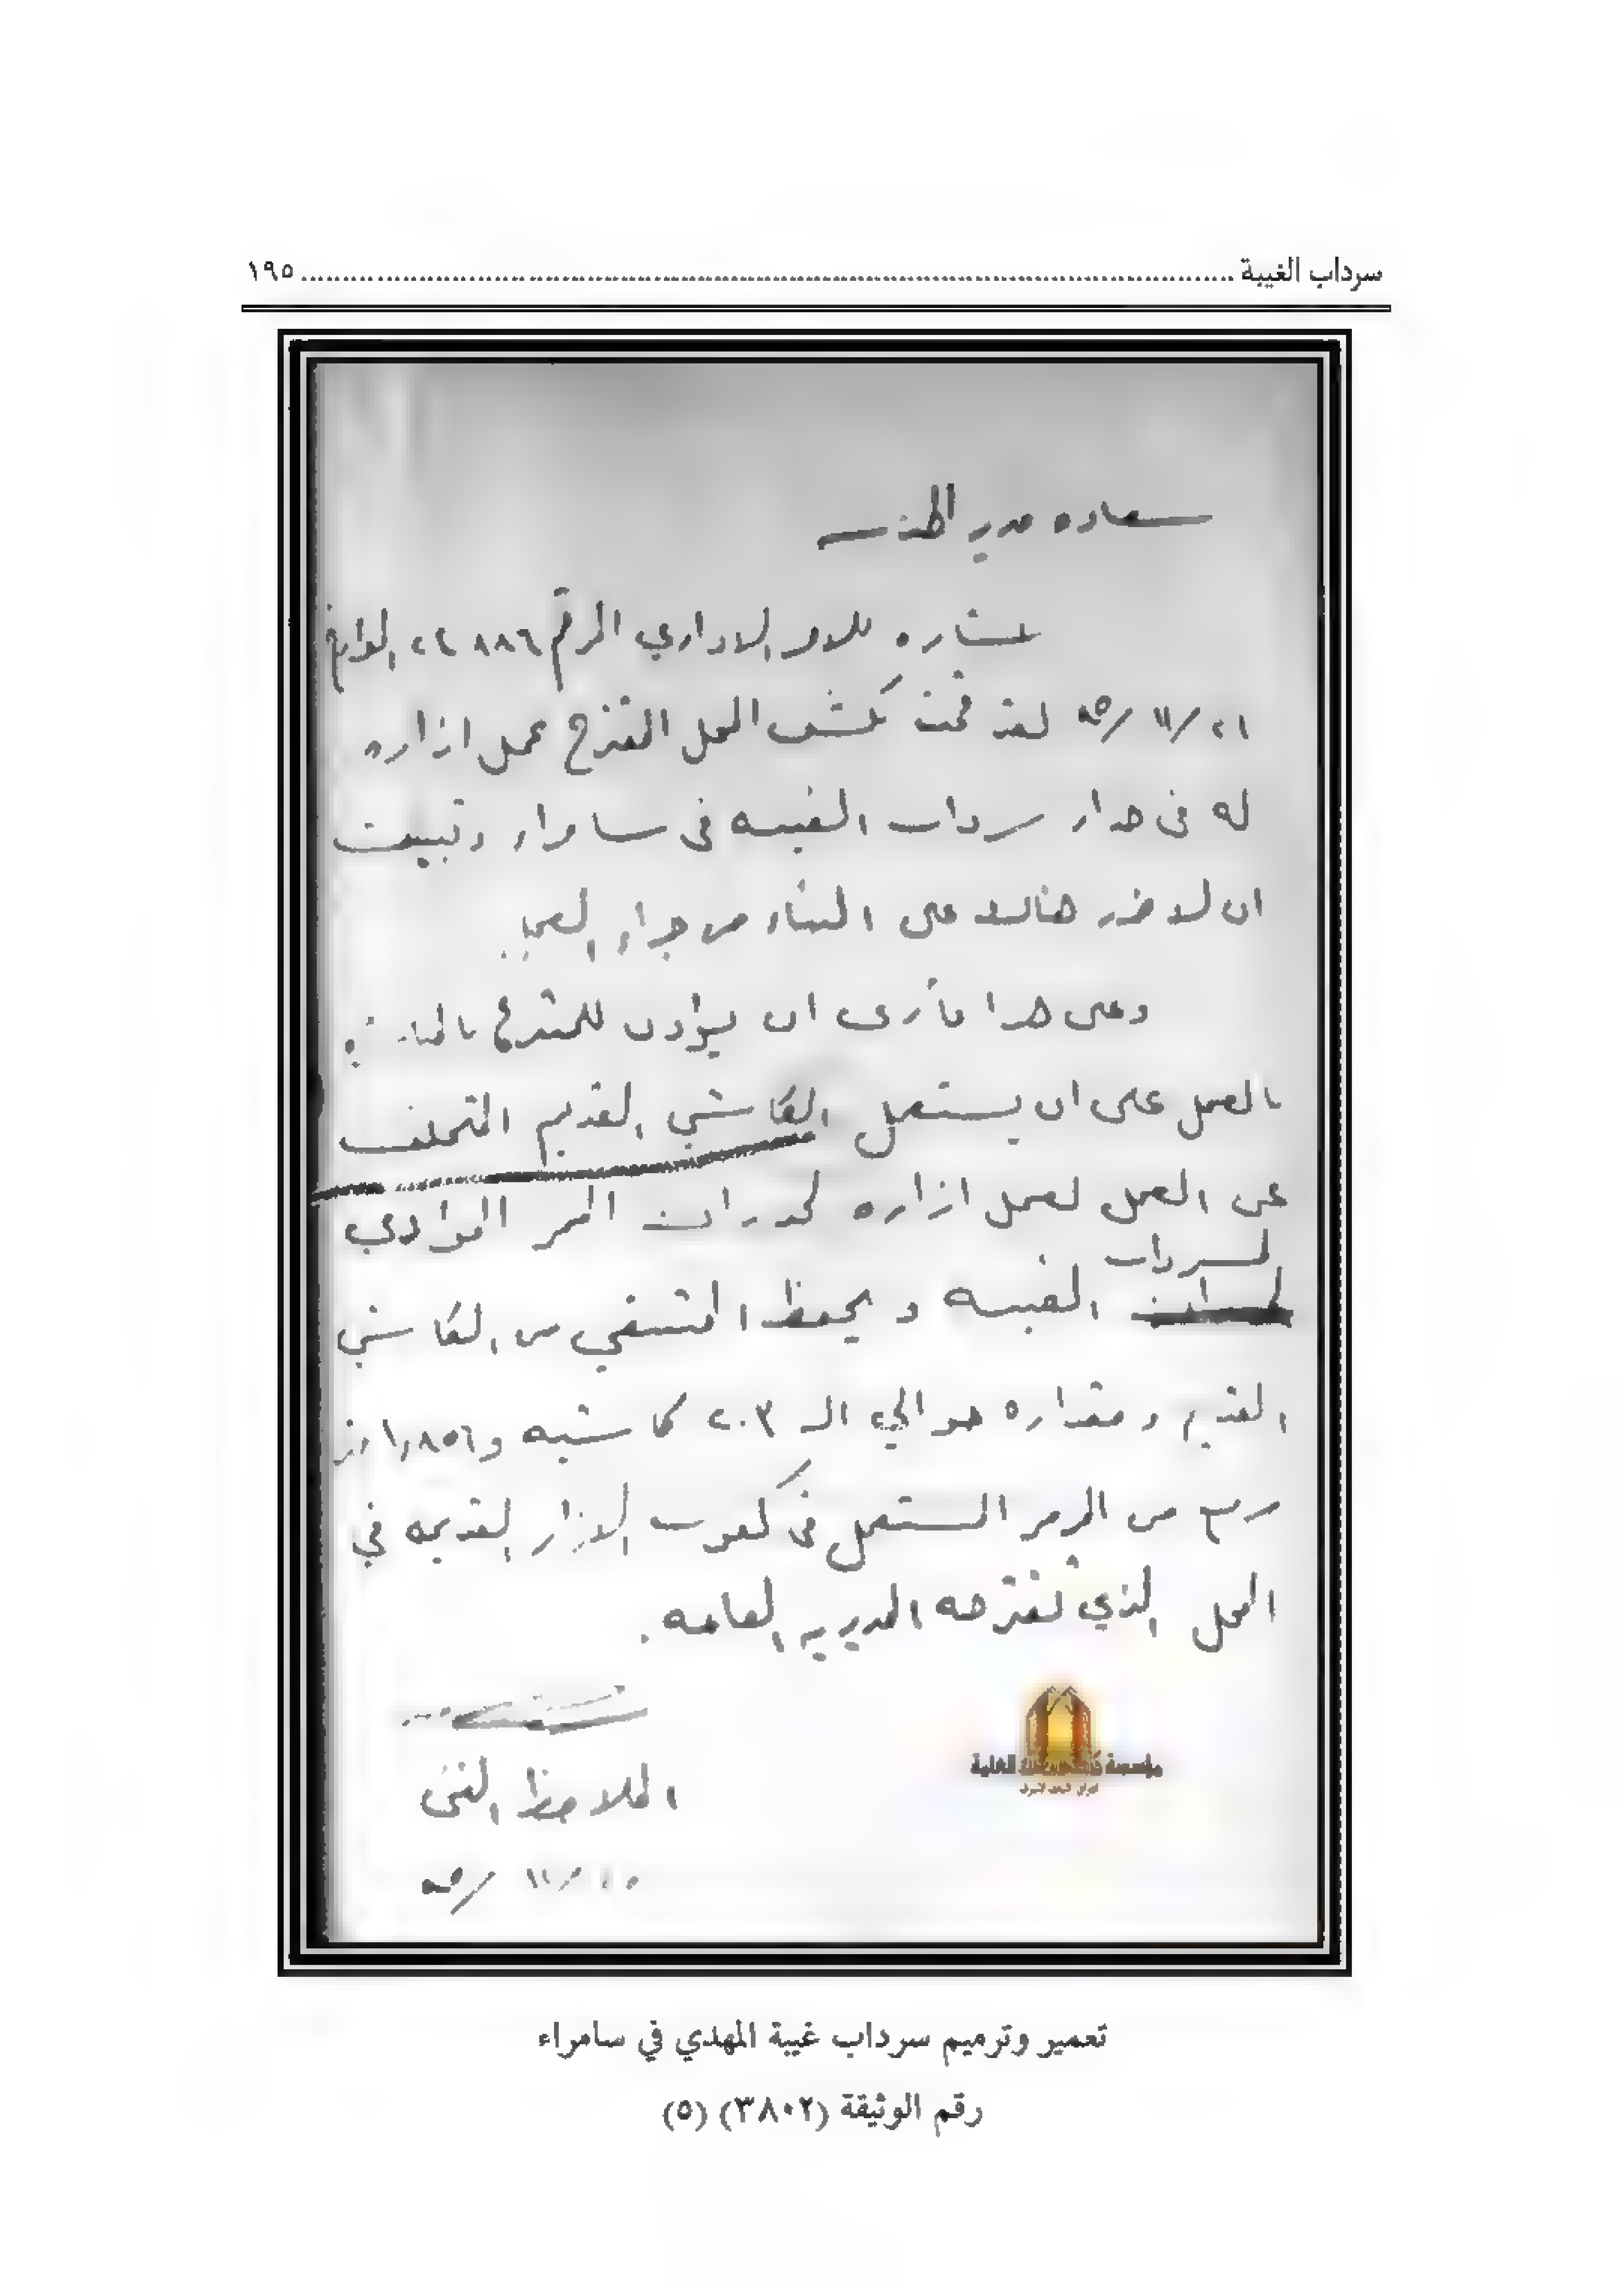 سرداب الغيبة ........ ١٩٥
سعاده مدير
للامر الاداري المرقم ٢٢٨٨٦
٢١/ ١١/ لقد قمت بكشف المحل المقترح عمل ازاره
له في جدار سرداب الغيبه في سامراء وتبينت
ان لا ضرر هنالك على البناء من جراء العمل.
وعلى هذا فأرى ان يؤذن للمتبرع
بالعمل على ان يستعمل الكاشي القديم المتخلف
عن العمل لعمل ازاره لجدران الممر المؤدي
لسرداب
الغيبه و يحفظ المتبقي من الكاشي
القديم ومقداره حوالي الـ ٢٠٣ كاشيه و
مربع من المرمر المستعمل في كعوب الازار القديمه في
المحل الذي تقترحه المديريه العامه.
الملاحظ الفني
تعمير وترميم سرداب غيبة المهدي في سامراء
رقم الوثيقة (٣٨٠٢) (٥)